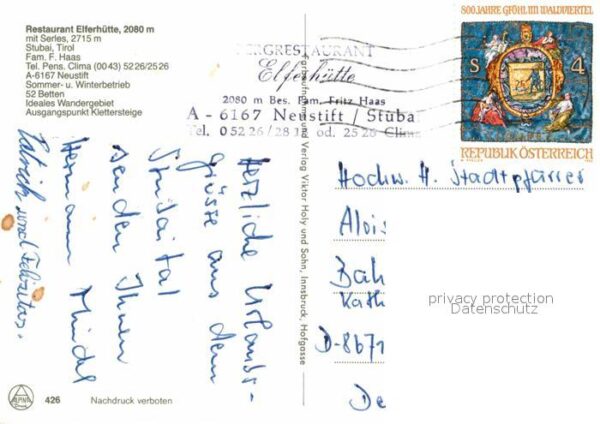 Restaurant Elferhütte, 2080 m
mit Serles, 2715 m
Stubai, Tirol
Fam. F. Haas
Tel. Pens. Clima (0043) 5226/2526
A-6167 Neustift
Sommer- u. Winterbetrieb
52 Betten
Ideales Wandergebiet
Ausgangspunkt Klettersteige
BERGRESTAURANT
Elferhütte
2080 m Bes. Fam. Fritz Haas
A - 6167 Neustift / Stuba
Tel. 05226/2818 od. 2526 Clima
800 JAHRE GFÖHL IM WALDVIERTEL
S 4
REPUBLIK ÖSTERREICH
Herzliche Urlaubs-
grüsse aus dem
Stubaital
senden Ihnen
Hermann Mindel
Patrick und Felizitas.
und Verlag Viktor Holy und Sohn, Innsbruck, Hofgasse
Hochw. H. Stadtpfarrer
Alois
Bah
Kath
D-8671
privacy protection
Datenschutz
ALPINA
426
Nachdruck verboten